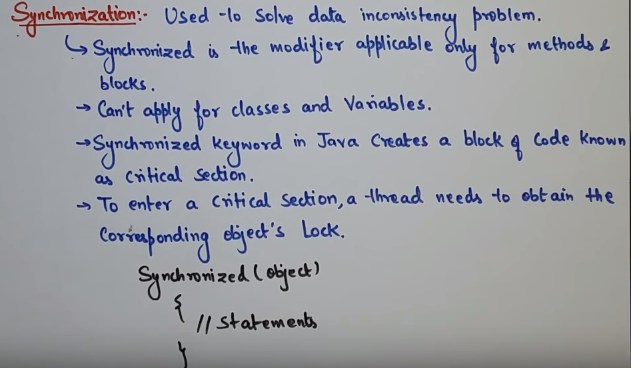 Synchronization:- Used to solve data inconsistency problem.
↳ Synchronized is the modifier applicable only for methods &
blocks.
→ Can't apply for classes and Variables.
→ Synchronized keyword in Java Creates a block of Code known
as critical section.
→ To enter a Critical Section, a thread needs to obtain the
Corresponding object's Lock.
Synchronized (object)
{
// Statements
}